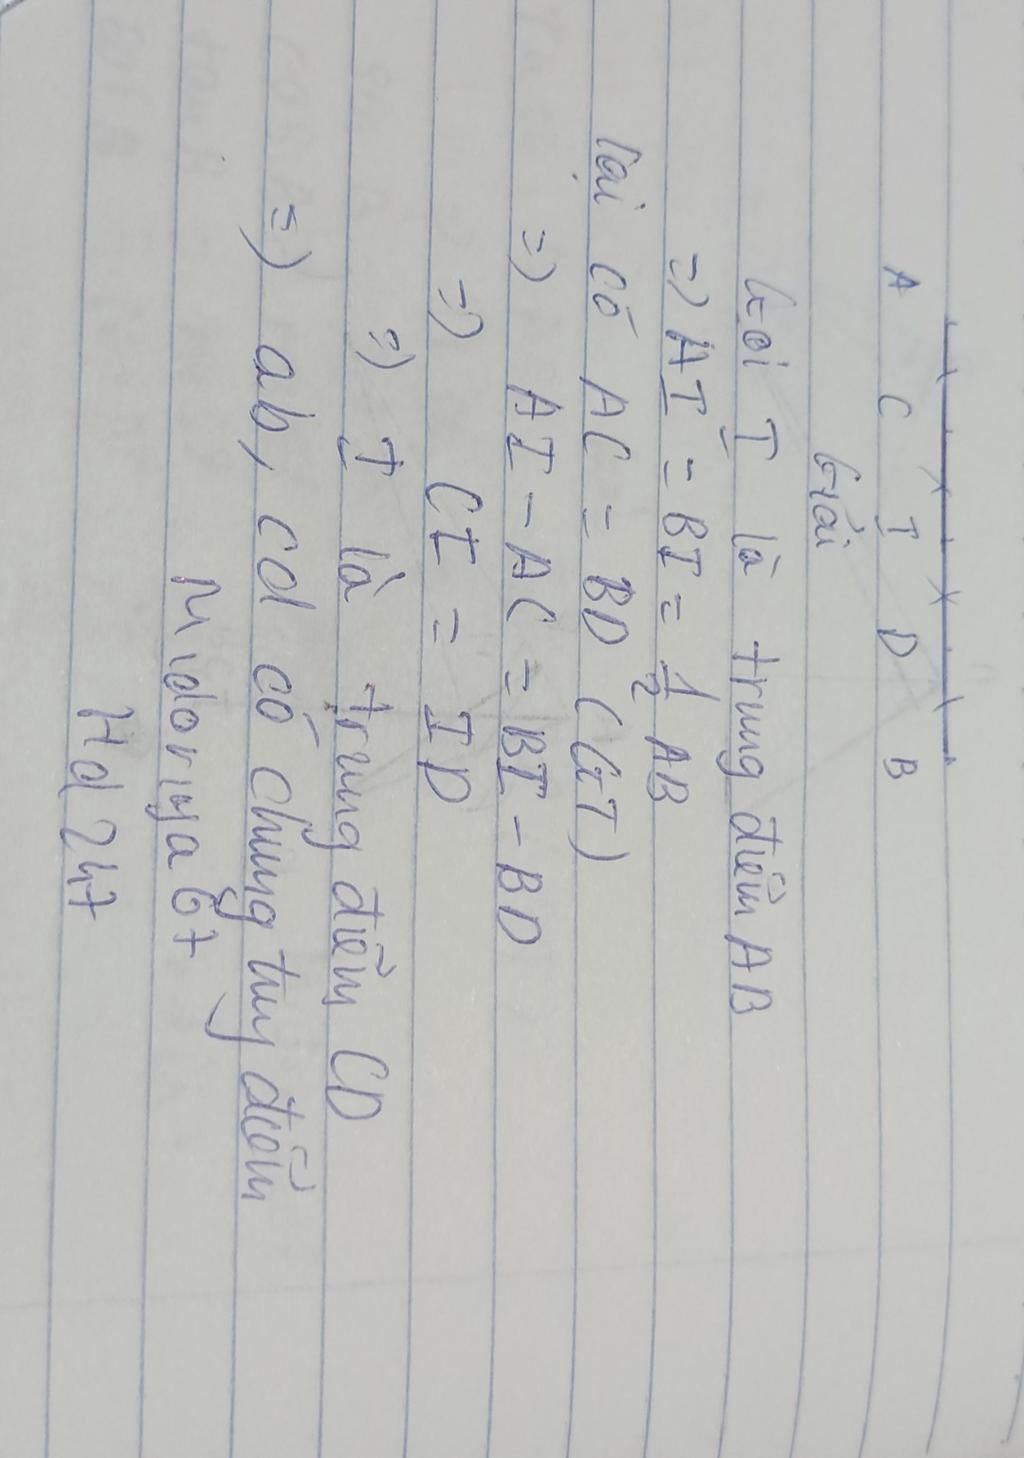 A C I D B
Giải
Gọi I là trung điểm AB
=> AI = BI = 1/2 AB
lại có AC = BD (GT)
=> AI - AC = BI - BD
=> CI = ID
=> I là trung điểm CD
=> ab, cd có chung tuy điểm
Midoriya 67
Hd 247